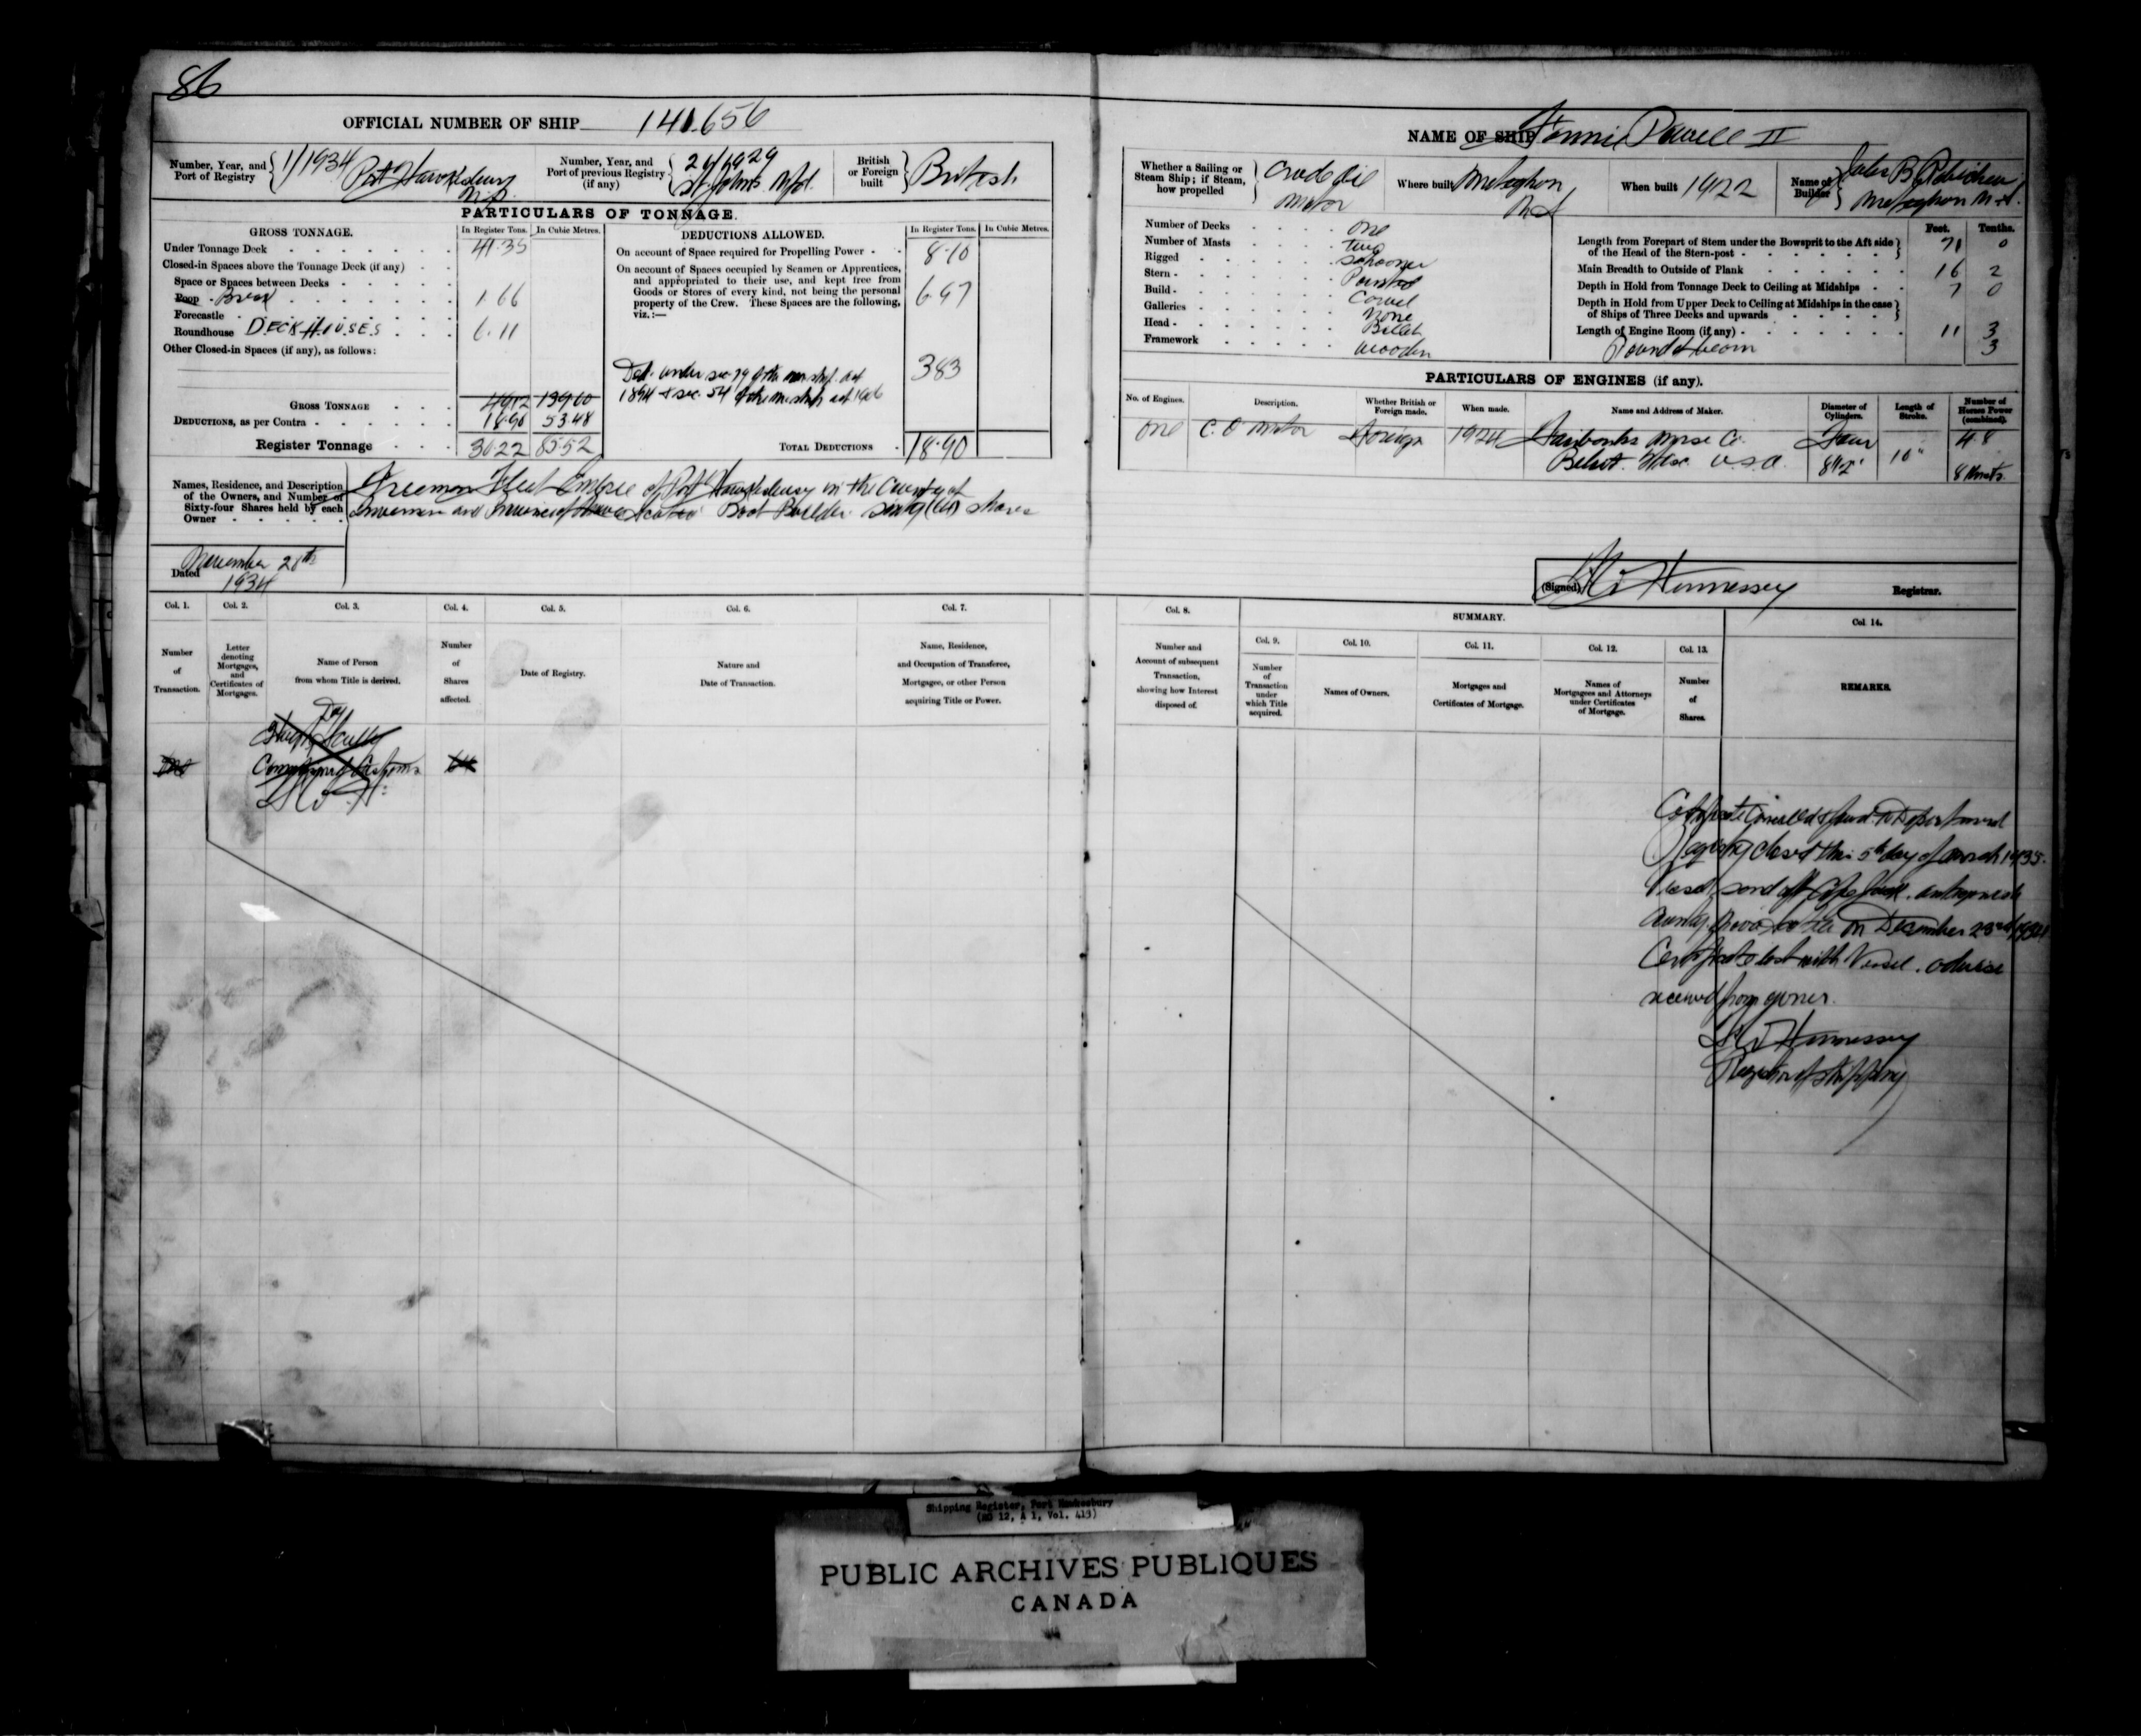 86
OFFICIAL NUMBER OF SHIP 141.656
Number, Year, and Port of Registry 1/1934 Port Hawkesbury N.S.
Number, Year, and Port of previous Registry (if any) 26/1929 St. Johns Nfd.
British or Foreign built British
PARTICULARS OF TONNAGE.
GROSS TONNAGE. In Register Tons. In Cubic Metres.
Under Tonnage Deck 41.35
Closed-in Spaces above the Tonnage Deck (if any)
Space or Spaces between Decks
Poop Break 1.66
Forecastle
Roundhouse DECK HOUSES 6.11
Other Closed-in Spaces (if any), as follows:
GROSS TONNAGE 49.12 139.00
DEDUCTIONS, as per Contra 18.90 53.48
Register Tonnage 30.22 85.52
DEDUCTIONS ALLOWED. In Register Tons. In Cubic Metres.
On account of Space required for Propelling Power 8.10
On account of Spaces occupied by Seamen or Apprentices,
and appropriated to their use, and kept free from
Goods or Stores of every kind, not being the personal
property of the Crew. These Spaces are the following,
viz.:— 6.97
Ded. under sec. 79 of the mer. ship. act 3 83
1894 & sec. 54 of the mer ship act 1906
TOTAL DEDUCTIONS 18.90
Names, Residence, and Description
of the Owners, and Number of
Sixty-four Shares held by each
Owner
Freeman Embree of Port Hawkesbury in the County of
Inverness and Province of Nova Scotia Boat Builder sixty (64) shares
Dated November 28th
1934
Col. 1. Col. 2. Col. 3. Col. 4. Col. 5. Col. 6. Col. 7.
Number of Transaction.
Letter denoting Mortgages, and Certificates of Mortgages.
Name of Person from whom Title is derived.
Number of Shares affected.
Date of Registry.
Nature and Date of Transaction.
Name, Residence, and Occupation of Transferee, Mortgagee, or other Person acquiring Title or Power.
Hugh Scully
one Customs 64
NAME OF SHIP Fannie Powell II
Whether a Sailing or Steam Ship; if Steam, how propelled Crude oil motor
Where built Meteghan N.S.
When built 1922
Name of Builder Jules B Robichau Meteghan N.S.
Number of Decks One
Number of Masts Two
Rigged Schooner
Stern Pointed
Build Carvel
Galleries None
Head Billet
Framework Wooden
Feet. Tenths.
Length from Forepart of Stem under the Bowsprit to the Aft side
of the Head of the Stern-post 71 0
Main Breadth to Outside of Plank 16 2
Depth in Hold from Tonnage Deck to Ceiling at Midships 7 0
Depth in Hold from Upper Deck to Ceiling at Midships in the case
of Ships of Three Decks and upwards
Length of Engine Room (if any) 11 3
Round of beam 3
PARTICULARS OF ENGINES (if any).
No. of Engines. Description. Whether British or Foreign made. When made. Name and Address of Maker. Diameter of Cylinders. Length of Stroke. Number of Horses Power (combined).
One C. O motor Foreign 1924 Fairbanks Morse Co. Four 48
Beloit. Wisc. U.S.A. 8½" 10" 8 Knots
(Signed) Hennessey Registrar.
Col. 8. SUMMARY. Col. 14.
Col. 9. Col. 10. Col. 11. Col. 12. Col. 13.
Number and Account of subsequent Transaction, showing how Interest disposed of.
Number of Transaction under which Title acquired.
Names of Owners.
Mortgages and Certificates of Mortgage.
Names of Mortgagees and Attorneys under Certificates of Mortgage.
Number of Shares.
REMARKS.
Certificate Cancelled & forwd. to Department
Registry closed this 5th day of March 1935.
Vessel off Cape Antigonish
County Nova Scotia on December 23rd 1934
Certificate lost with Vessel. advise
received from owner.
Hennessey
Registrar of Shipping
Shipping Register, Port Hawkesbury
(RG 12, A 1, Vol. 413)
PUBLIC ARCHIVES PUBLIQUES
CANADA